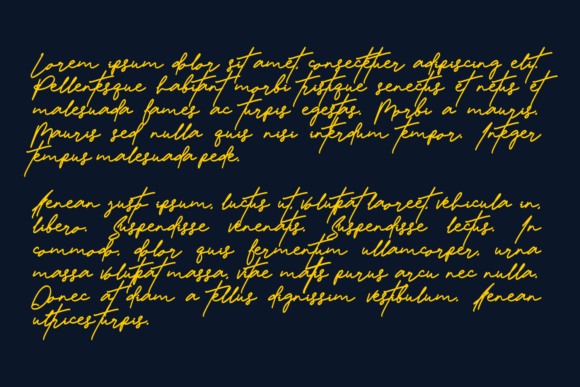 Lorem ipsum dolor sit amet, consectetuer adipiscing elit.
Pellentesque habitant morbi tristique senectus et netus et
malesuada fames ac turpis egestas. Morbi a mauris.
Mauris sed nulla quis nisi interdum tempor. Integer
tempus malesuada pede.
Aenean justo ipsum, luctus ut, volutpat laoreet, vehicula in,
libero. Suspendisse venenatis. Suspendisse lectus. In
commodo, dolor quis fermentum ullamcorper, urna
massa volutpat massa, vitae mattis purus arcu nec nulla.
Donec at diam a tellus dignissim vestibulum. Aenean
ultrices turpis.